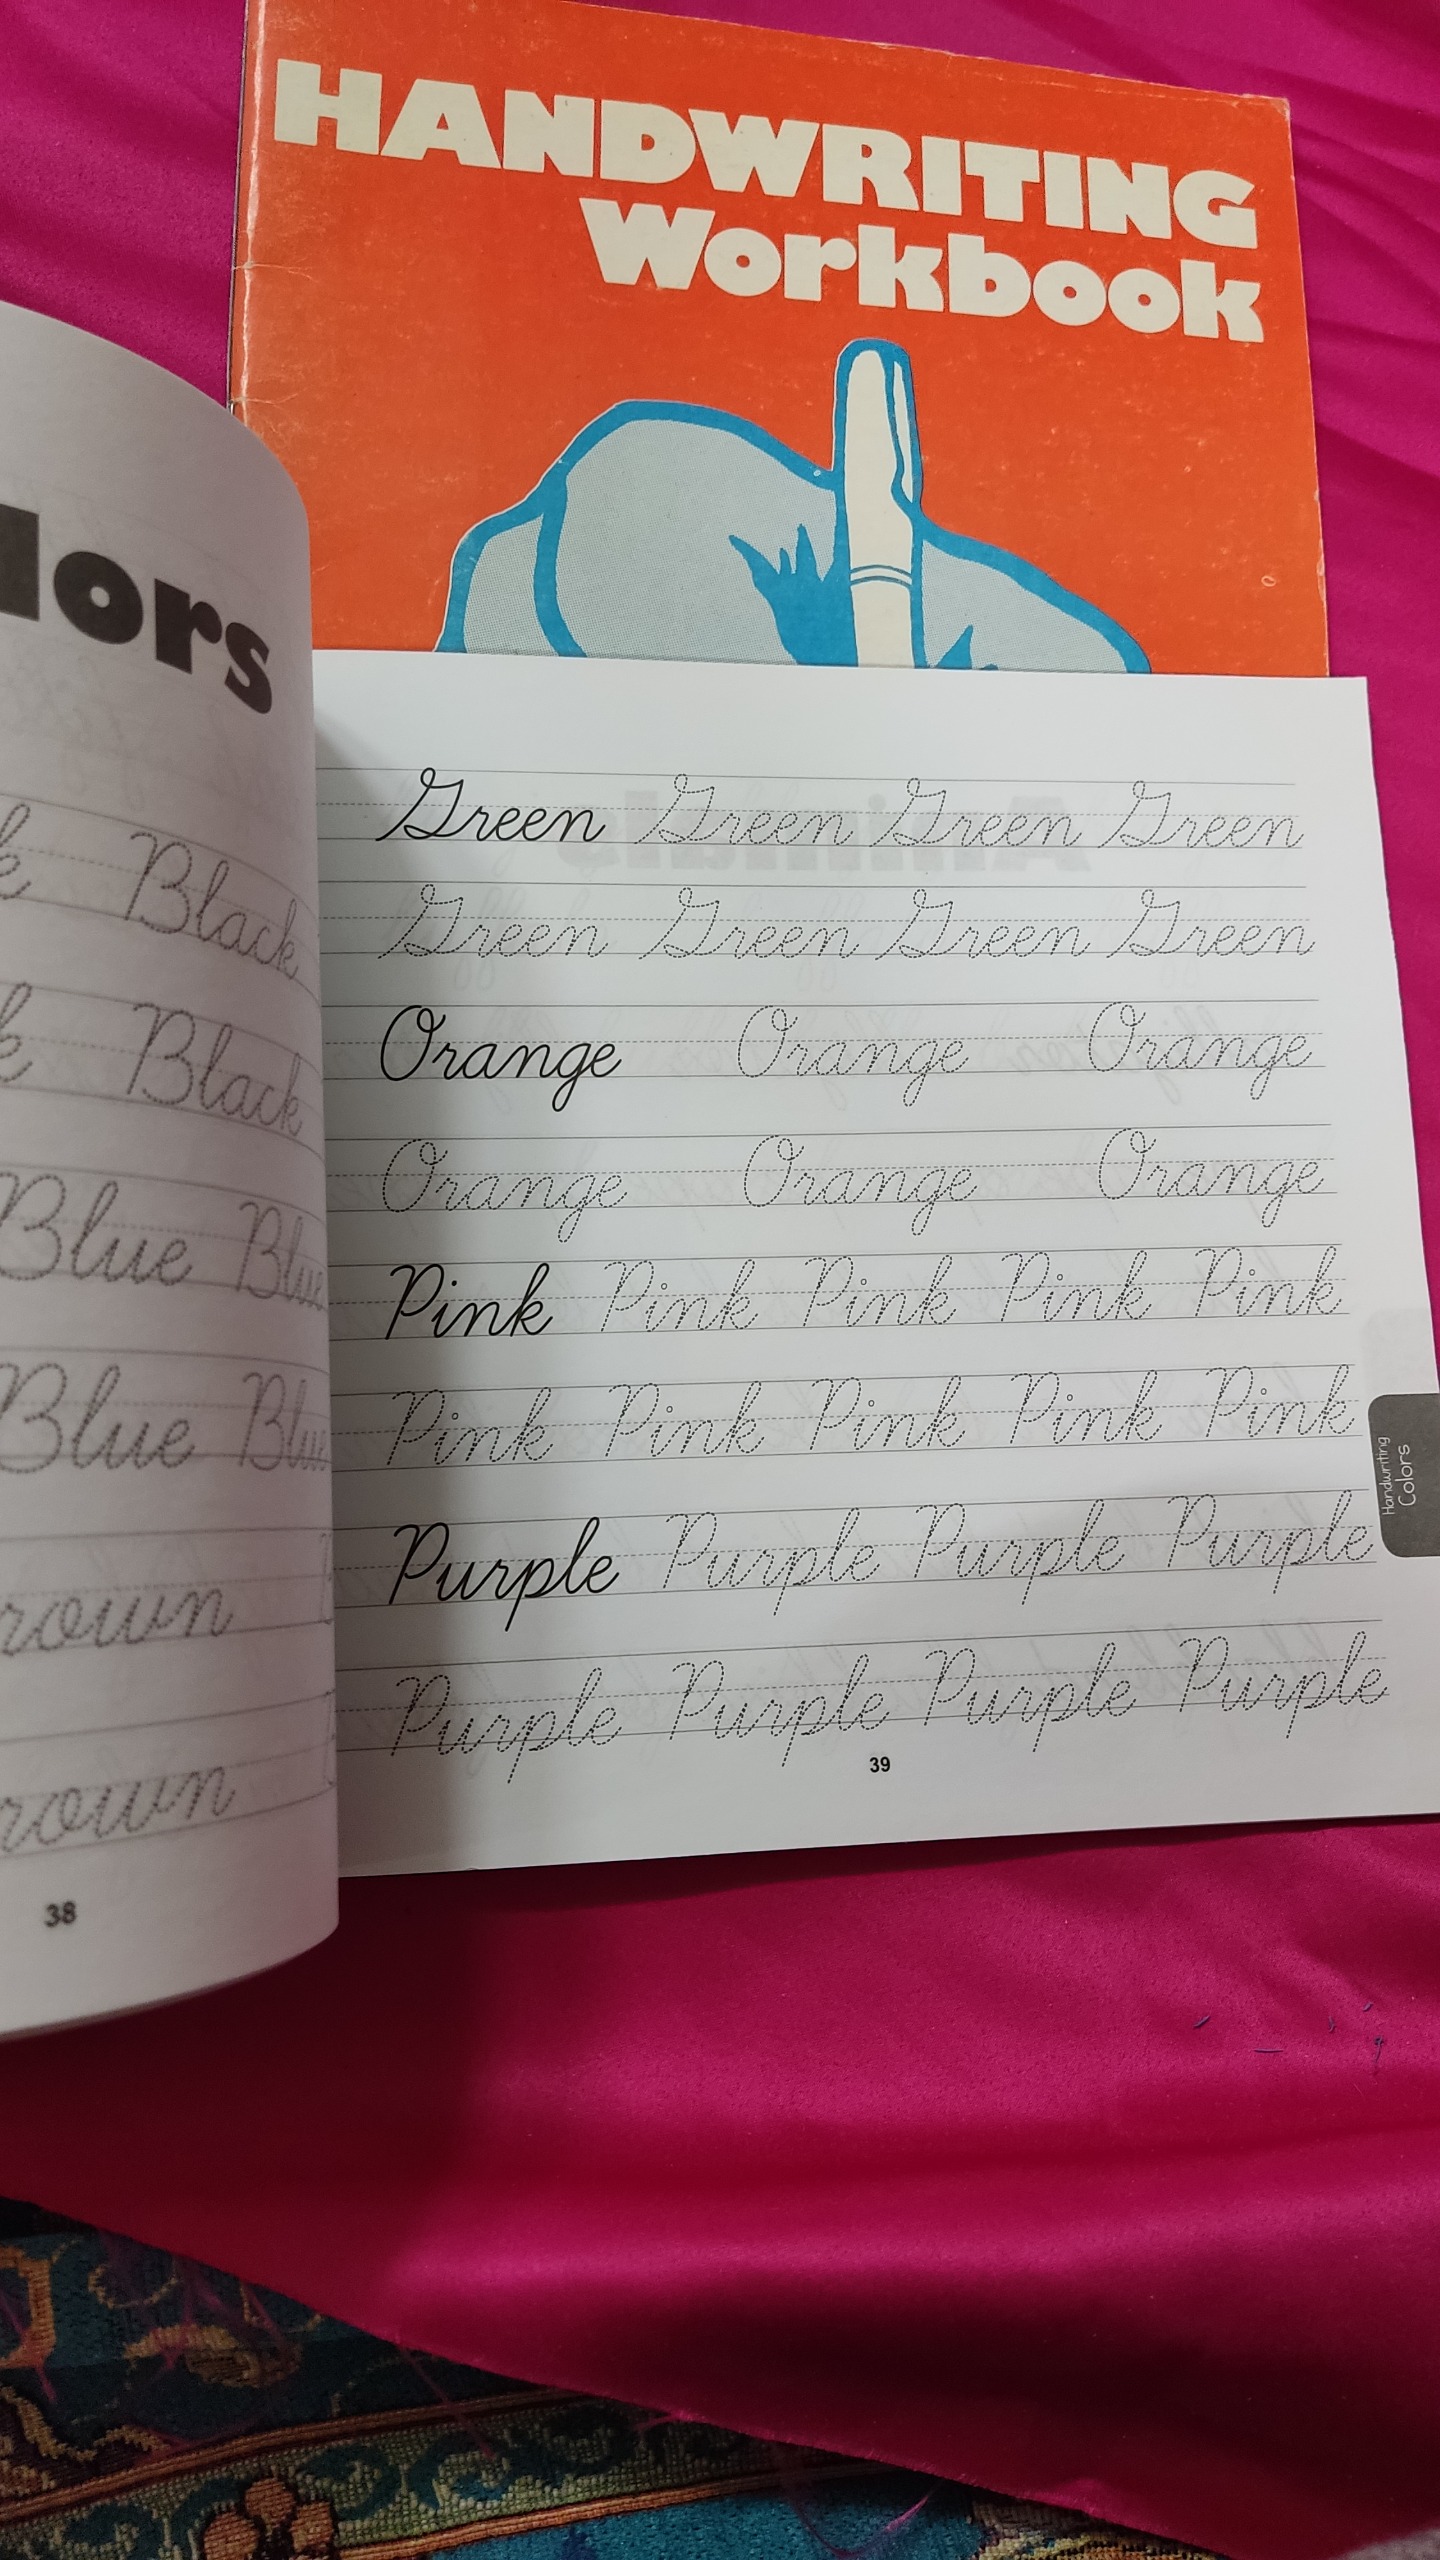 HANDWRITING
Workbook
lors
k Black
k Black
Blue Blue
Blue Blue
rown
rown
38
Green Green Green Green
Green Green Green Green
Orange Orange Orange
Orange Orange Orange
Pink Pink Pink Pink Pink
Pink Pink Pink Pink Pink
Purple Purple Purple Purple
Purple Purple Purple Purple
39
Handwriting
Colors